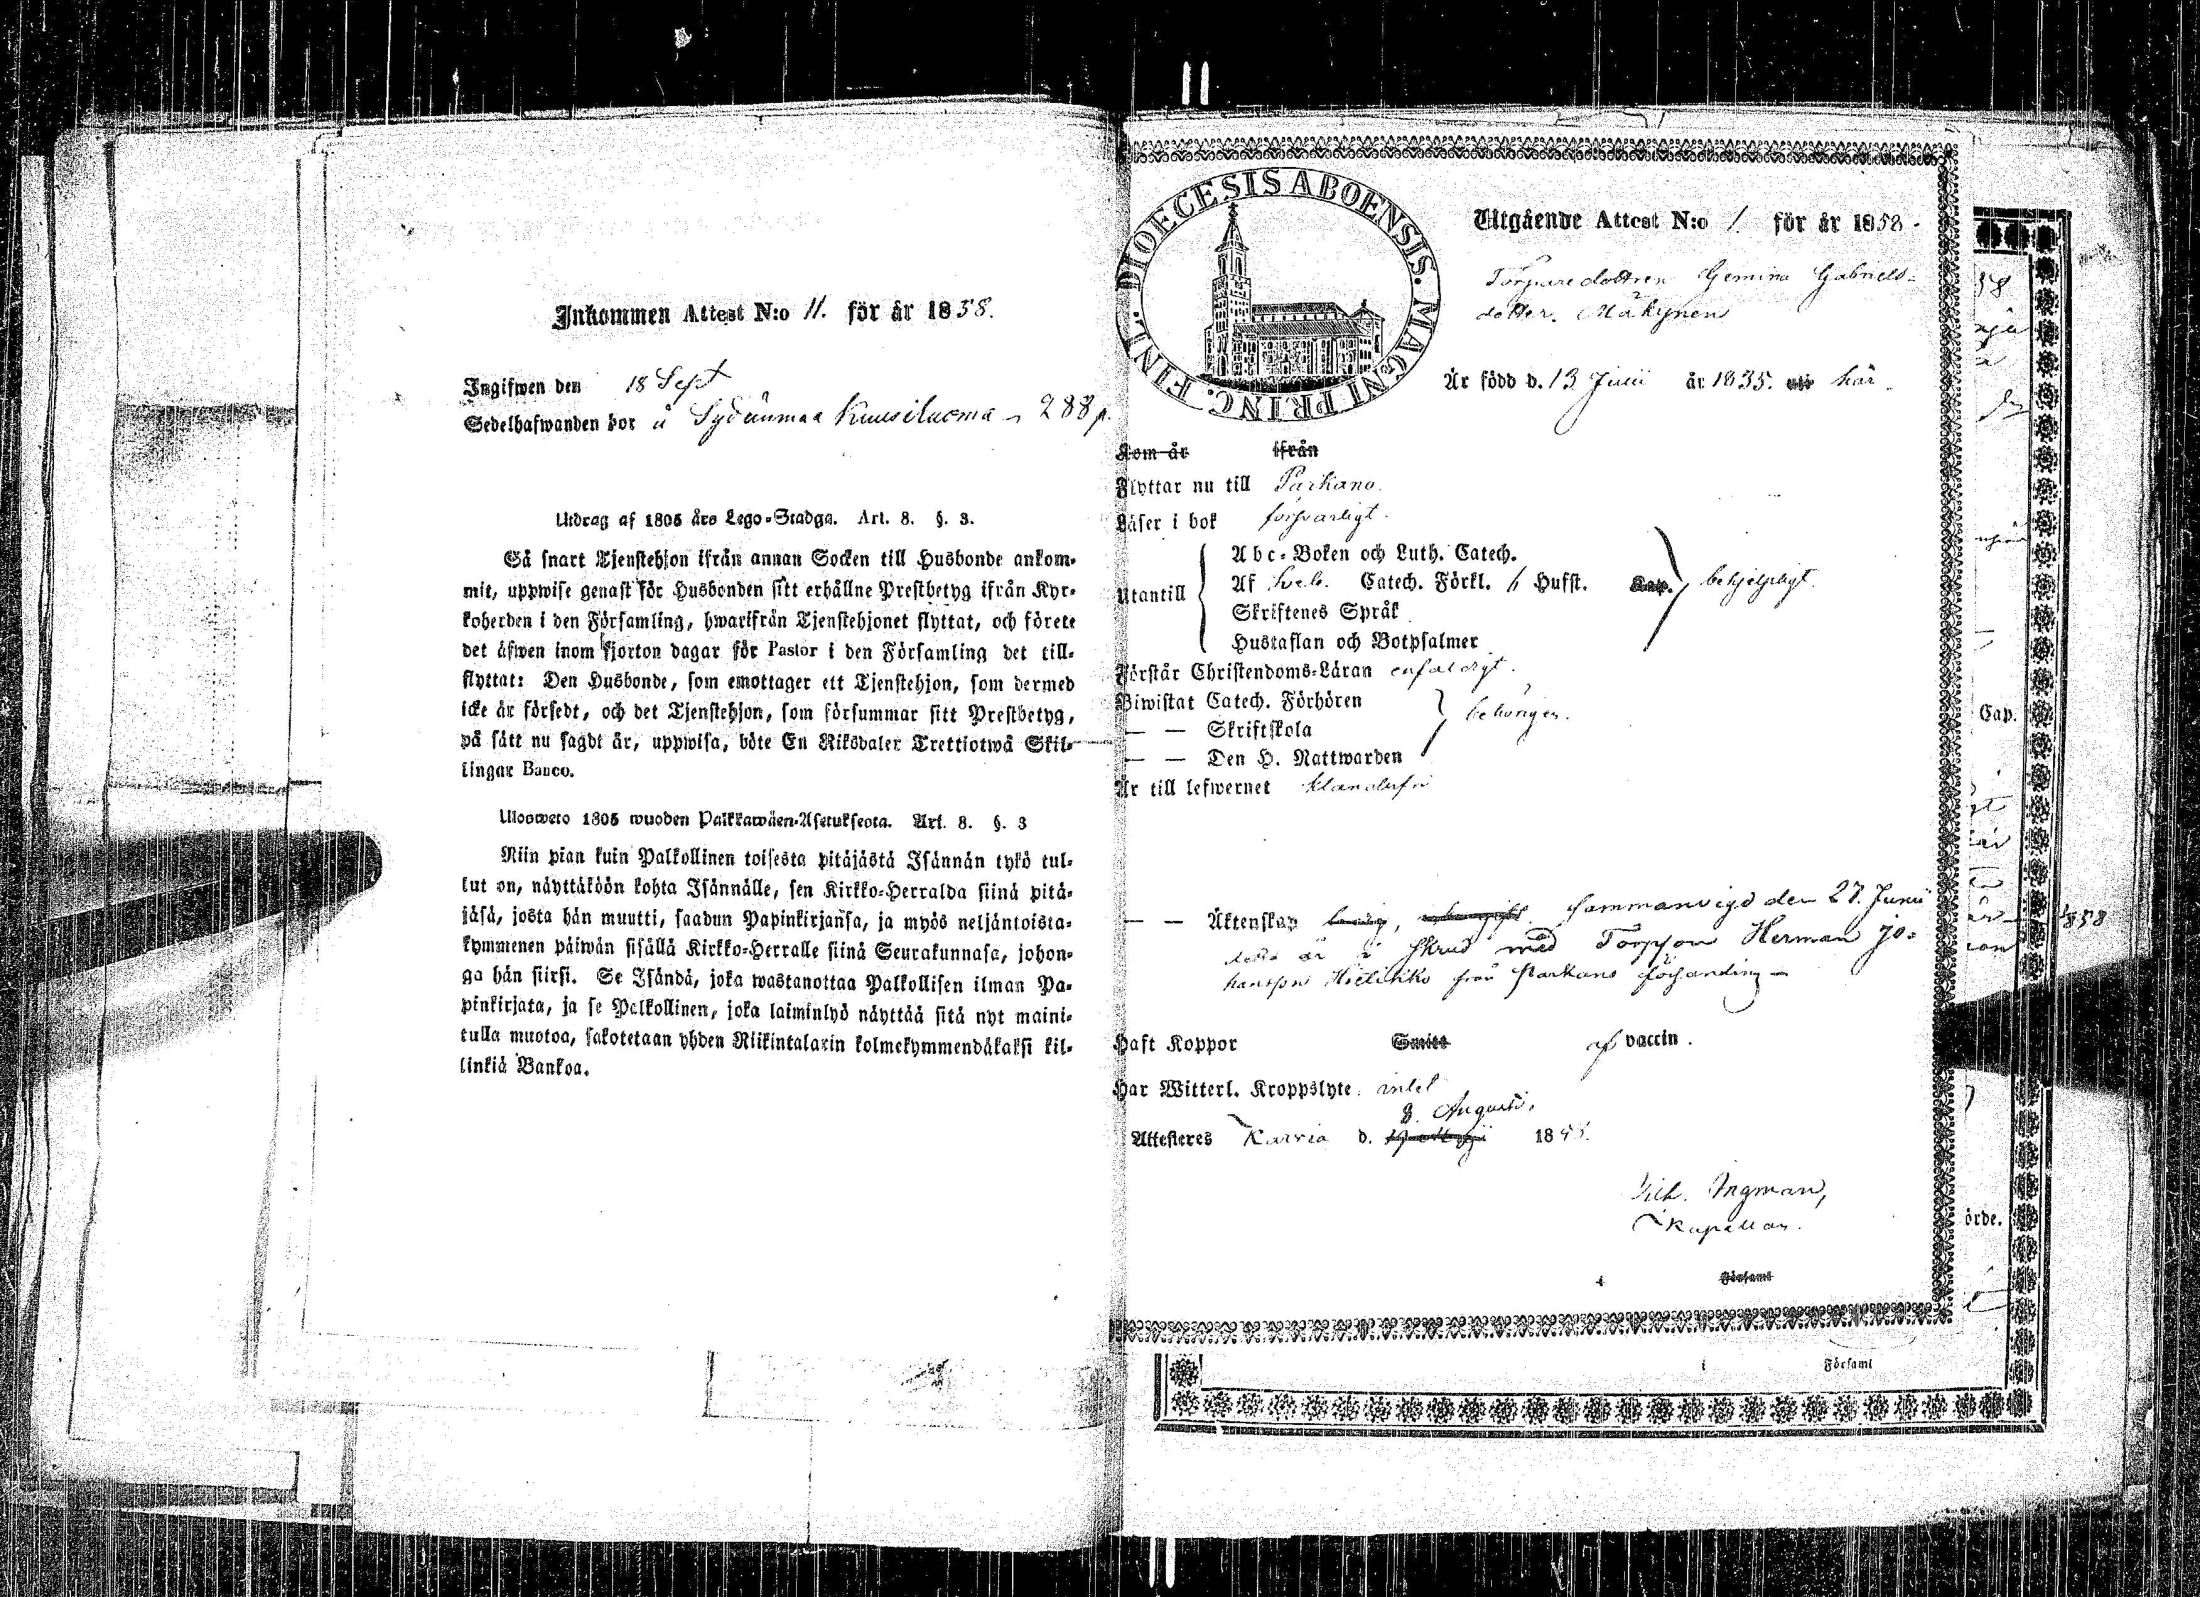 Inkommen Attest N:o 11. för år 1858.
Ingifwen den 18 Sept
Sedelhafwanden bor å Sydänmaa Kuusiluoma 288 p.
Utdrag af 1805 års Lego-Stadga. Art. 8. §. 3.
Så snart Tjenstehjon ifrån annan Socken till Husbonde ankom-
mit, uppwise genast för Husbonden sitt erhållne Prestbetyg ifrån Kyr-
koherden i den Församling, hwarifrån Tjenstehjonet flyttat, och förete
det äfwen inom fjorton dagar för Pastor i den Församling det till-
flyttat: Den Husbonde, som emottager ett Tjenstehjon, som dermed
icke är försedt, och det Tjenstehjon, som försummar sitt Prestbetyg,
på sätt nu sagdt är, uppwisa, böte En Riksdaler Trettiotwå Skil-
lingar Banco.
Ulosweto 1805 wuoden Palkkawäen-Asetuksesta. Art. 8. §. 3
Niin pian kuin Palkollinen toisesta pitäjästä Isännän tykö tul-
lut on, näyttäköön kohta Isännälle, sen Kirkko-Herralda siinä pitä-
jäsä, josta hän muutti, saadun Papinkirjansa, ja myös neljäntoista-
kymmenen päiwän sisällä Kirkko-Herralle siinä Seurakunnasa, johon-
ga hän siirsi. Se Isändä, joka wastanottaa Palkollisen ilman Pa-
pinkirjata, ja se Palkollinen, joka laiminlyö näyttää sitä nyt maini-
tulla muotoa, sakotetaan yhden Riikintalarin kolmekymmendäkaksi kil-
linkiä Bankoa.
DIOECESIS ABOENSIS. MAGNI PRINC. FINL.
Utgående Attest N:o 1. för år 1858.
Torparedottren Gemina Gabriels-
dotter Mäkynen
Är född d. 13 Junii år 1835. här.
Kom år ifrån
Flyttar nu till Parkano.
Läser i bok försvarligt.
Abc-Boken och Luth. Catech.
Utantill Af Sveb. Catech. Förkl. Hufst. Cap. behjelpligt.
Skriftenes Språk
Hustaflan och Botpsalmer
Förstår Christendoms-Läran enfaldigt.
Biwistat Catech. Förhören
— — Skriftskola behörigen.
— — Den H. Nattwarden
Är till lefwernet klanderfri
— — Äktenskap ledig, sammanvigd den 27. Junii
detta år i med Torpson Herman Jo-
hansson från Parkano församling
Haft Koppor af vaccin.
Har Witterl. Kroppslyte intet
8. Augusti,
Attesteres Karvia d. 18
Ingman,
Kapellan.
Församl
Församl
Cap.
örde.
1858